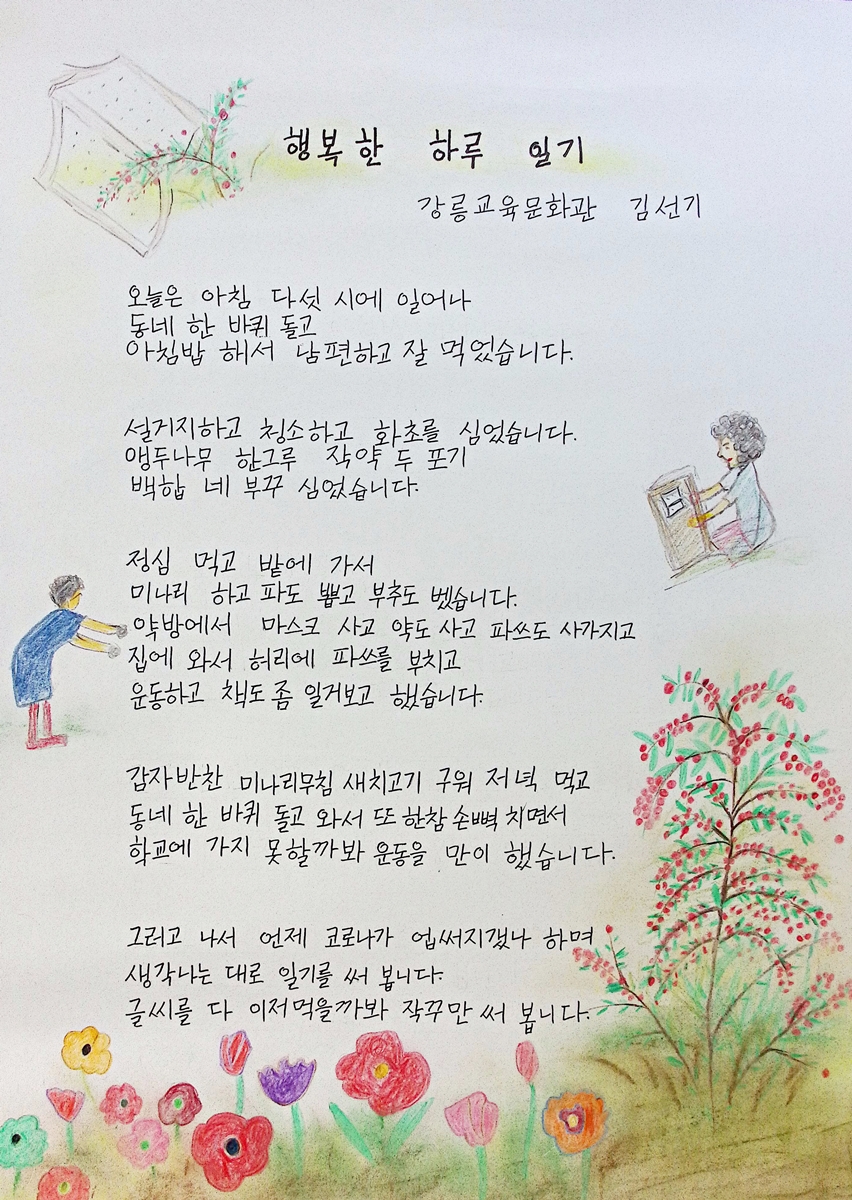 행복한 하루 일기
강릉교육문화관 김선기
오늘은 아침 다섯 시에 일어나
동네 한 바퀴 돌고
아침밥 해서 남편하고 잘 먹었습니다.
설거지하고 청소하고 화초를 심었습니다.
앵두나무 한그루 작약 두 포기
백합 네 부꾸 심었습니다.
정심 먹고 밭에 가서
미나리 하고 파도 뽑고 부추도 벴습니다.
약방에서 마스크 사고 약도 사고 파쓰도 사가지고
집에 와서 허리에 파쓰를 부치고
운동하고 책도 좀 일거보고 했습니다.
감자반찬 미나리무침 새치고기 구워 저녁 먹고
동네 한 바퀴 돌고 와서 또 한참 손뼉 치면서
학교에 가지 못할까봐 운동을 만이 했습니다.
그러고 나서 언제 코로나가 업써지겠나 하며
생각나는 대로 일기를 써 봅니다.
글씨를 다 이저먹을까봐 작꾸만 써 봅니다.